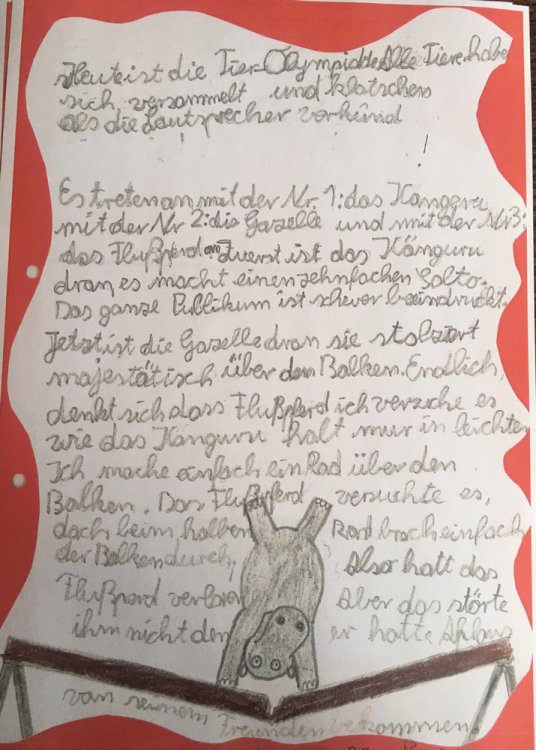 Heute ist die Tier Olympiade Alle Tiere habe
sich versammelt und klatschen
als die Lautsprecher verkünd
!
Es treten an mit der Nr. 1: das Känguru
mit der Nr 2: die Gazelle und mit der Nr 3:
das Flußpferd Zuerst ist das Känguru
dran, es macht einen zehnfachen Salto.
Das ganze Publikum ist schwer beeindruckt.
Jetzt ist die Gazelle dran sie stolziert
majestätisch über den Balken. Endlich,
denkt sich dass Flußpferd ich versuche es
wie das Känguru halt nur in leichter
Ich mache einfach ein Rad über den
Balken. Das Flußpferd versuchte es,
doch beim halben Rad brach einfach
der Balken durch, Also hatt das
Flußpferd verloren Aber das störte
ihm nicht den er hatte Aplaus
von seinem Freunden bekommen.